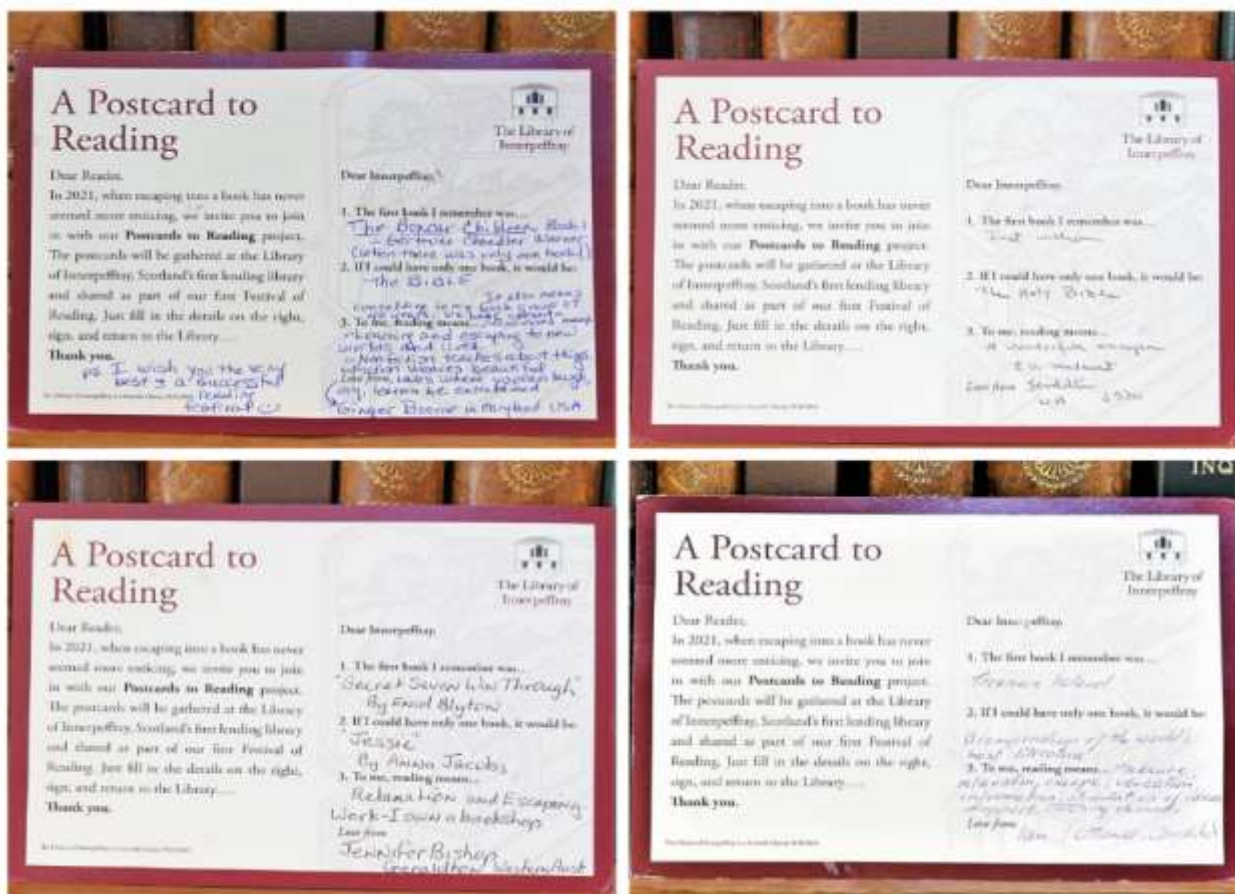 A Postcard to
Reading
Dear Reader,
In 2021, when escaping into a book has never
seemed more enticing, we invite you to join
in with our Postcards to Reading project.
The postcards will be gathered at the Library
of Innerpeffray, Scotland's first lending library
and shared as part of our first Festival of
Reading. Just fill in the details on the right,
sign, and return to the Library.....
Thank you.
ps I wish you the very
best & a successful
reading
festival
The Library of
Innerpeffray
Dear Innerpeffray,
1. The first book I remember was...
The Boxcar Children Book 1
- Gertrude Chandler Warner
(when there was only one book!)
2. If I could have only one book, it would be:
The BIBLE
3. To me, reading means...
learning and escaping to new
worlds and lives
Nonfiction teaches about things
Love from,
Ginger Boone in Maryland USA
A Postcard to
Reading
Dear Reader,
In 2021, when escaping into a book has never
seemed more enticing, we invite you to join
in with our Postcards to Reading project.
The postcards will be gathered at the Library
of Innerpeffray, Scotland's first lending library
and shared as part of our first Festival of
Reading. Just fill in the details on the right,
sign, and return to the Library.....
Thank you.
The Library of
Innerpeffray
Dear Innerpeffray,
1. The first book I remember was...
Just William
2. If I could have only one book, it would be:
The Holy Bible
3. To me, reading means...
A wonderful
Love from
WA 6530
A Postcard to
Reading
Dear Reader,
In 2021, when escaping into a book has never
seemed more enticing, we invite you to join
in with our Postcards to Reading project.
The postcards will be gathered at the Library
of Innerpeffray, Scotland's first lending library
and shared as part of our first Festival of
Reading. Just fill in the details on the right,
sign, and return to the Library.....
Thank you.
The Library of
Innerpeffray
Dear Innerpeffray,
1. The first book I remember was...
"Secret Seven Win Through"
By Enid Blyton
2. If I could have only one book, it would be:
"Jessie"
By Anna Jacobs
3. To me, reading means...
Relaxation and Escaping
Work-I own a bookshop
Love from
Jennifer Bishop
Geraldton Western Aust
INQ
A Postcard to
Reading
Dear Reader,
In 2021, when escaping into a book has never
seemed more enticing, we invite you to join
in with our Postcards to Reading project.
The postcards will be gathered at the Library
of Innerpeffray, Scotland's first lending library
and shared as part of our first Festival of
Reading. Just fill in the details on the right,
sign, and return to the Library.....
Thank you.
The Library of
Innerpeffray
Dear Innerpeffray,
1. The first book I remember was...
Treasure Island
2. If I could have only one book, it would be:
A compendium of the world's
best
3. To me, reading means... Pleasure,
relaxation, escape, education
information, stimulation of ideas
Love from